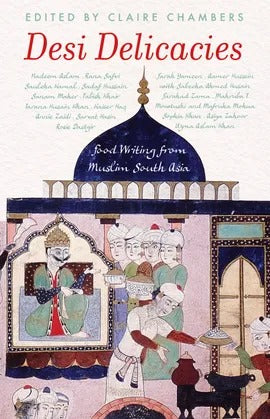 EDITED BY CLAIRE CHAMBERS
Desi Delicacies
Nadeem Aslam, Rana Safvi
Sauleha Kamal, Sadaf Hussain
Sanam Maher, Tabish Khair
Tarana Husain Khan, Kaiser Haq
Annie Zaidi, Sarvat Hasin
Rosie Dastgir
Farah Yameen, Aamer Hussein
with Sabeeha Ahmed Husain
Farahad Zama, Mahruba T.
Mowtushi and Mafruha Mohua
Sophia Khan, Asiya Zahoor
Uzma Aslam Khan
Food Writing from
Muslim South Asia